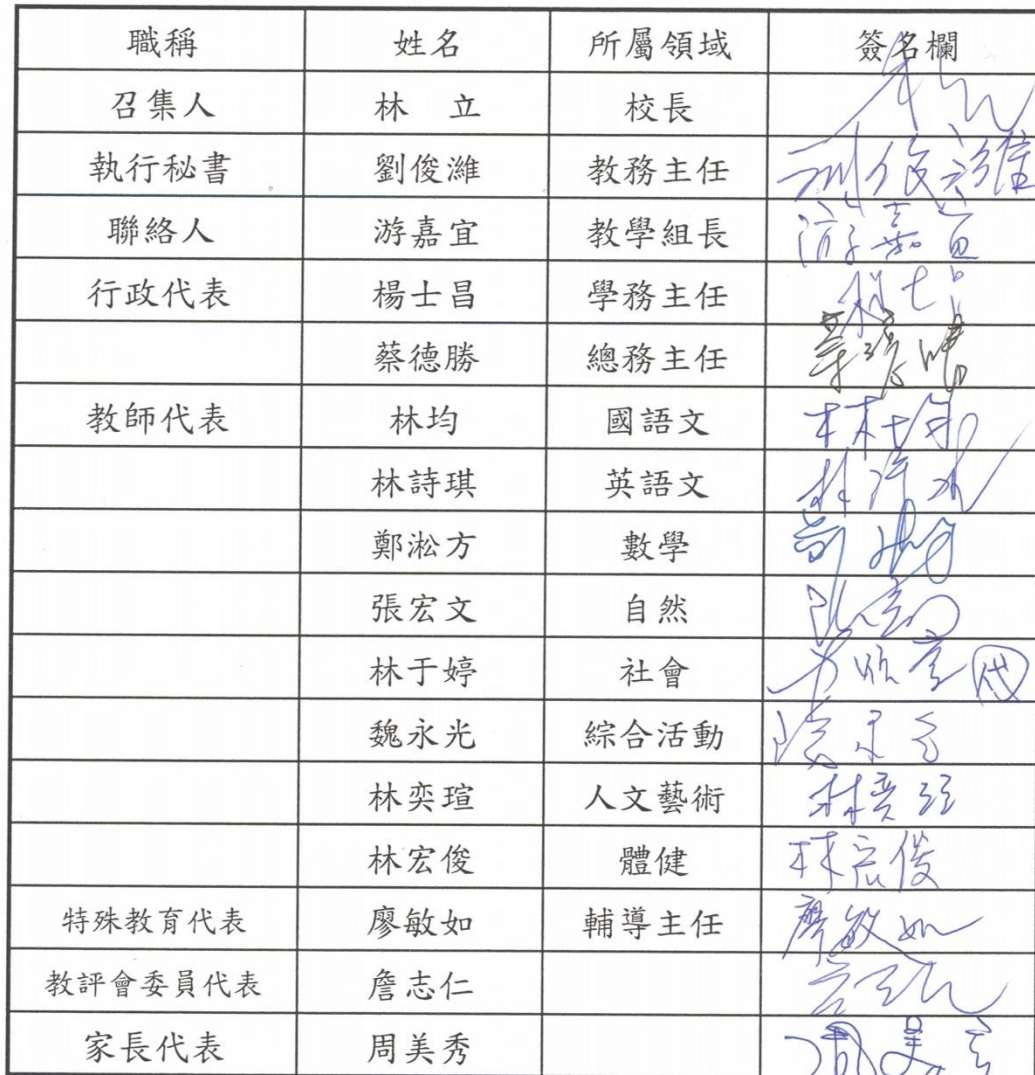 職稱 姓名 所屬領域 簽名欄
召集人 林 立 校長
執行秘書 劉俊濰 教務主任 劉俊濰
聯絡人 游嘉宜 教學組長 游嘉宜
行政代表 楊士昌 學務主任
蔡德勝 總務主任
教師代表 林均 國語文 林均
林詩琪 英語文
鄭淞方 數學
張宏文 自然
林于婷 社會 代
魏永光 綜合活動
林奕瑄 人文藝術
林宏俊 體健 林宏俊
特殊教育代表 廖敏如 輔導主任 廖敏如
教評會委員代表 詹志仁
家長代表 周美秀 周美秀